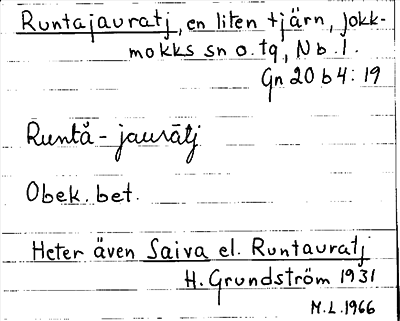 Runtajauratj, en liten tjärn, Jokk-
mokks sn o. tg, Nb. l.
Gn 20 b 4: 19
Runtå-jaurātj
Obek. bet.
Heter även Saiva el. Runtauratj
H. Grundström 1931
M.L. 1966